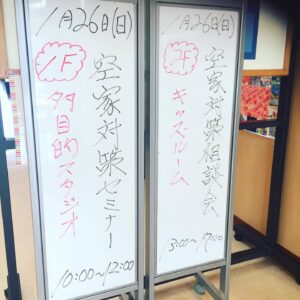 1月26日(日)
1F
多目的スタジオ
空家対策セミナー
10:00〜12:00
1月26日(日)
2F
キッズルーム
空家対策相談会
13:00〜17:00